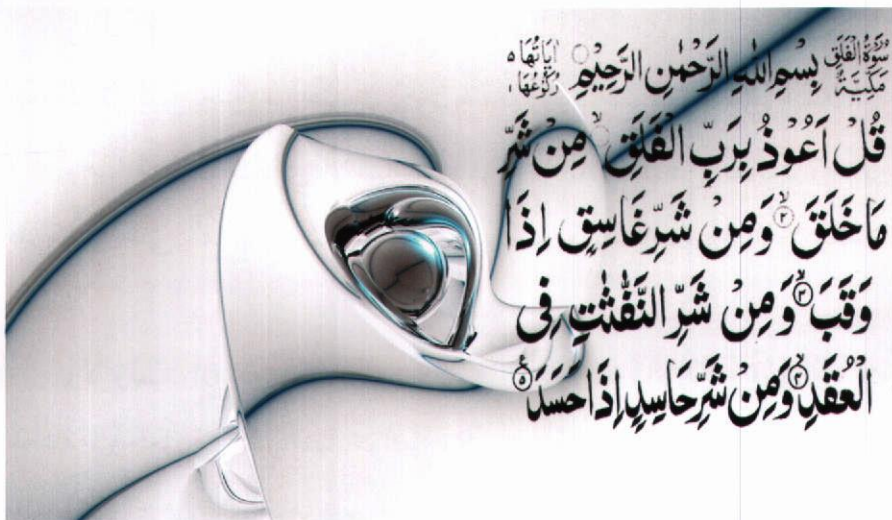 سُوْرَةُ الْفَلَقِ مَكِّيَّةٌ بِسْمِ اللهِ الرَّحْمٰنِ الرَّحِيْمِ اٰيَاتُهَا ٥ رُكُوْعُهَا ١
قُلْ اَعُوْذُ بِرَبِّ الْفَلَقِ ۙ﴿١﴾ مِنْ شَرِّ
مَا خَلَقَ ۙ﴿٢﴾ وَمِنْ شَرِّ غَاسِقٍ اِذَا
وَقَبَ ۙ﴿٣﴾ وَمِنْ شَرِّ النَّفّٰثٰتِ فِى
الْعُقَدِ ۙ﴿٤﴾ وَمِنْ شَرِّ حَاسِدٍ اِذَا حَسَدَ ﴿٥﴾